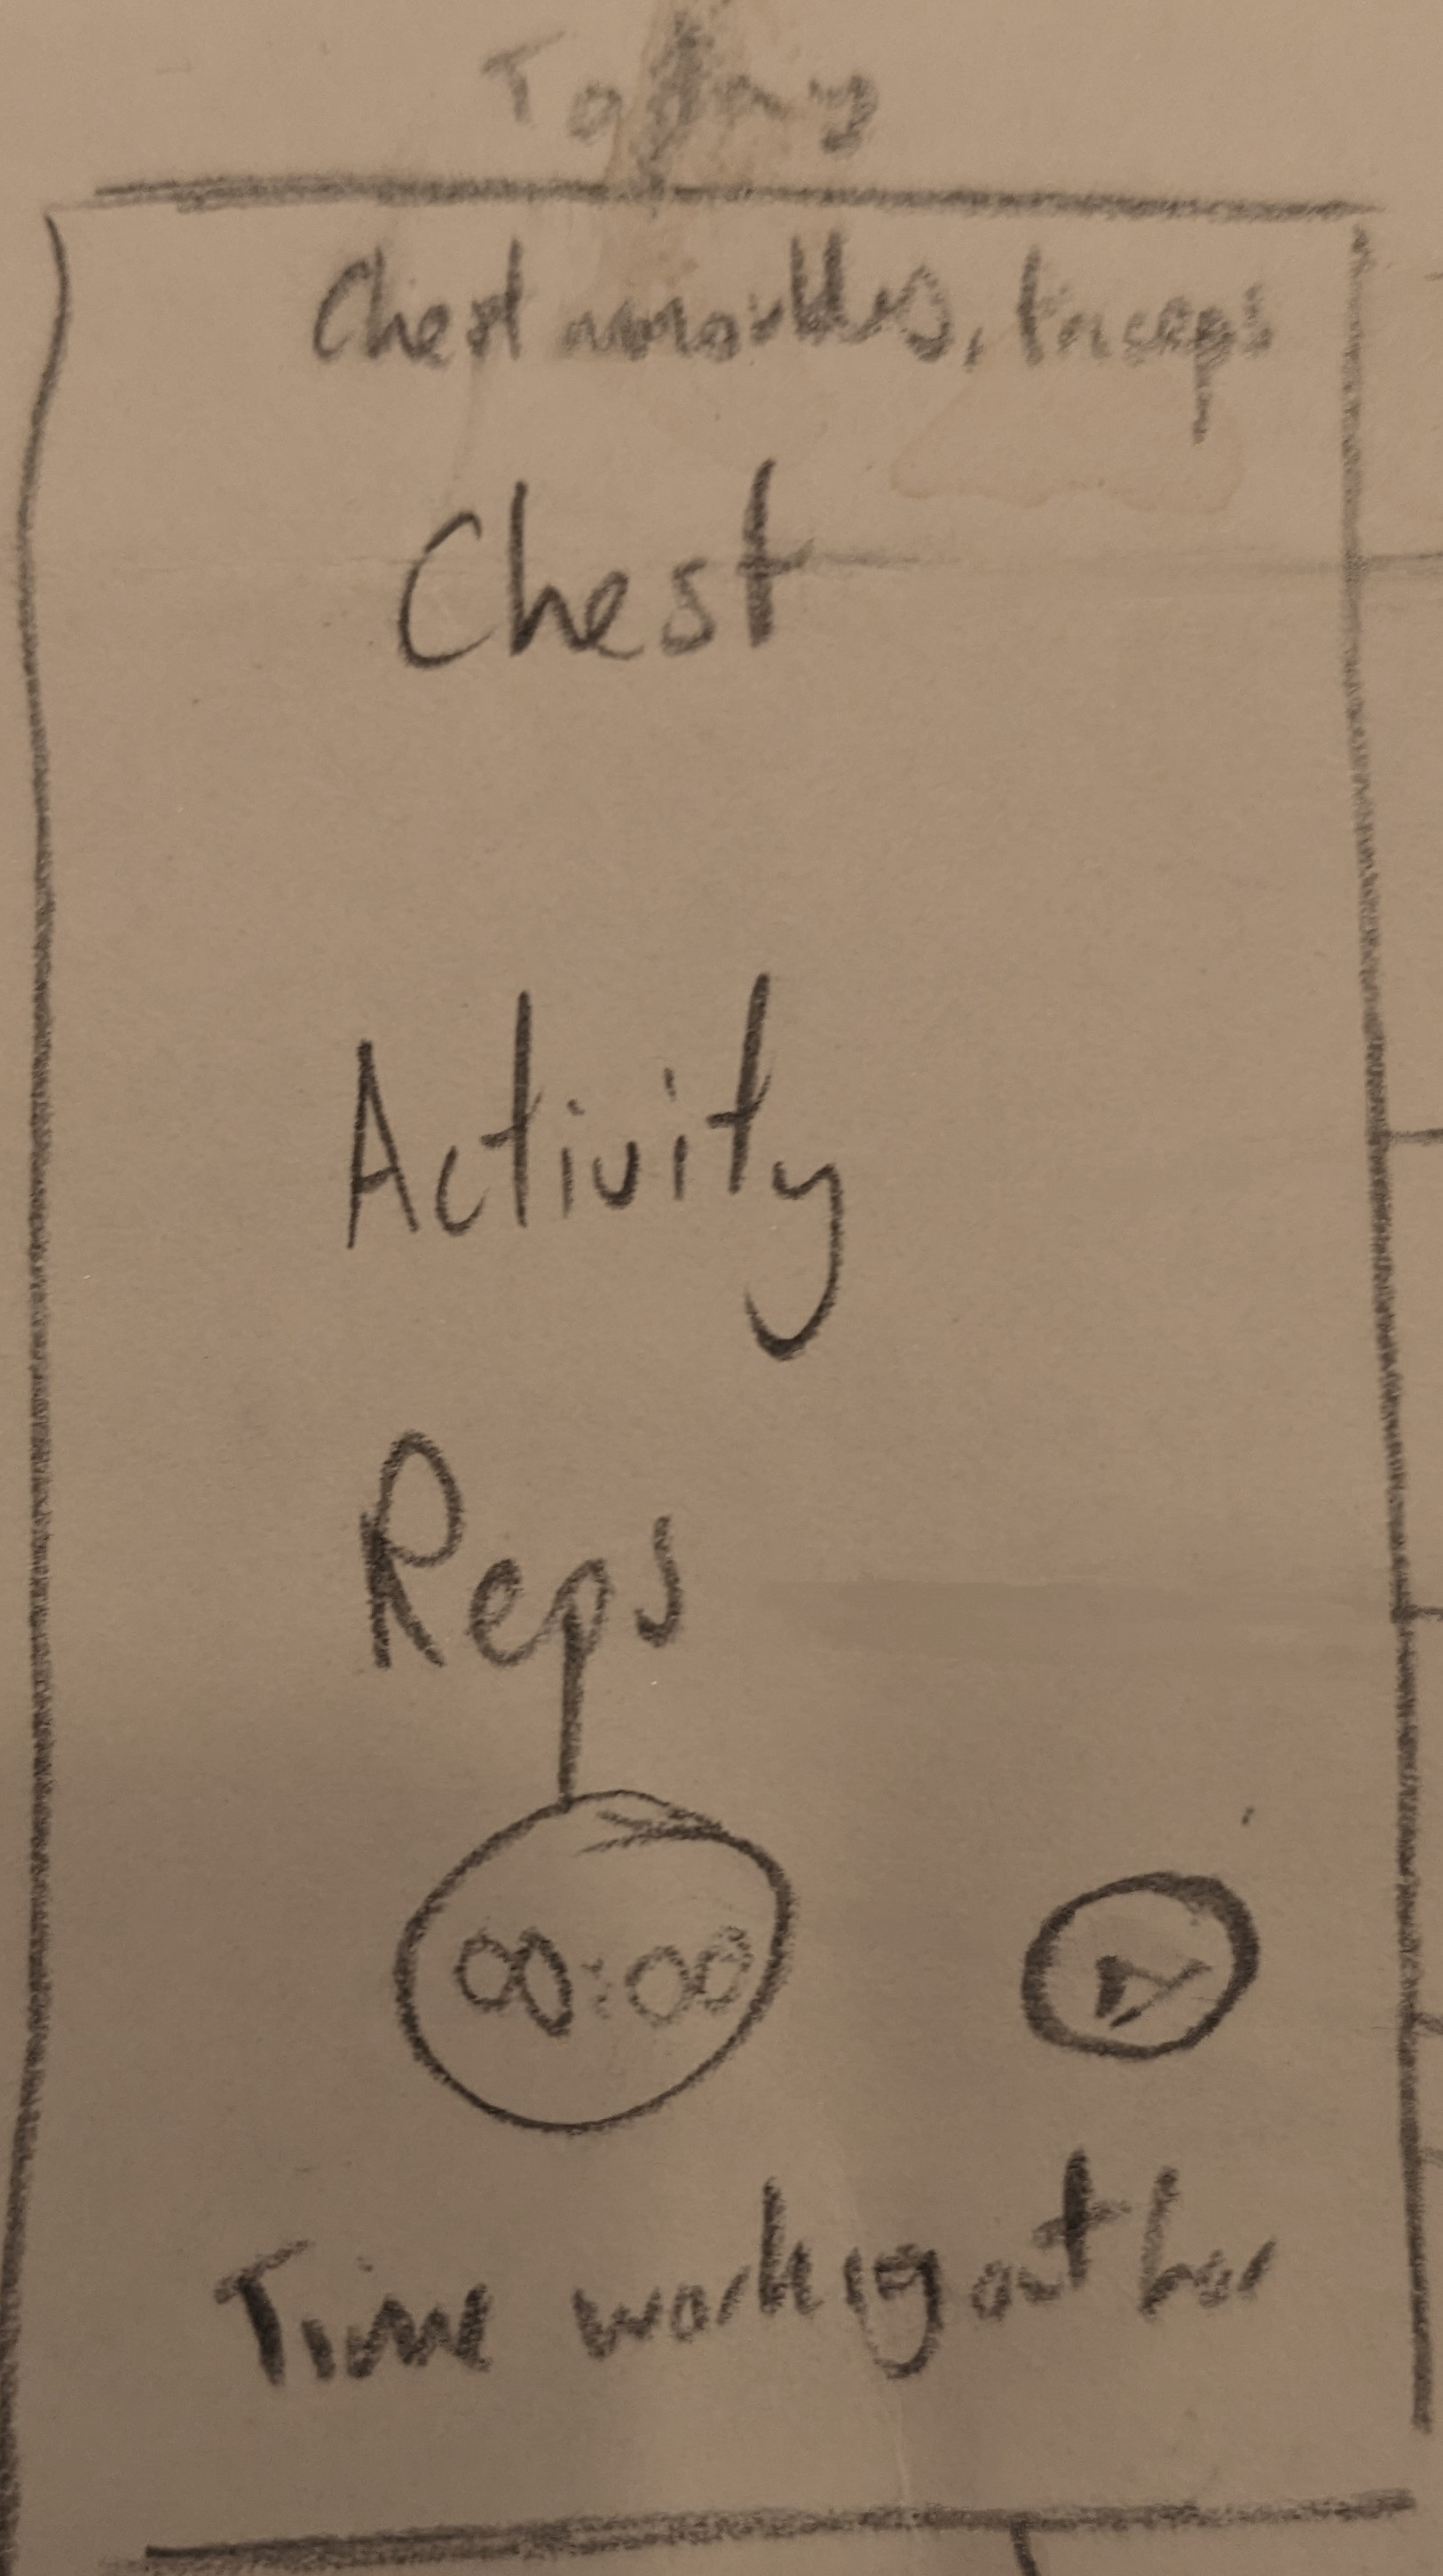 Today
Chest shoulders, triceps
Chest
Activity
Reps
00:00
Time working out for